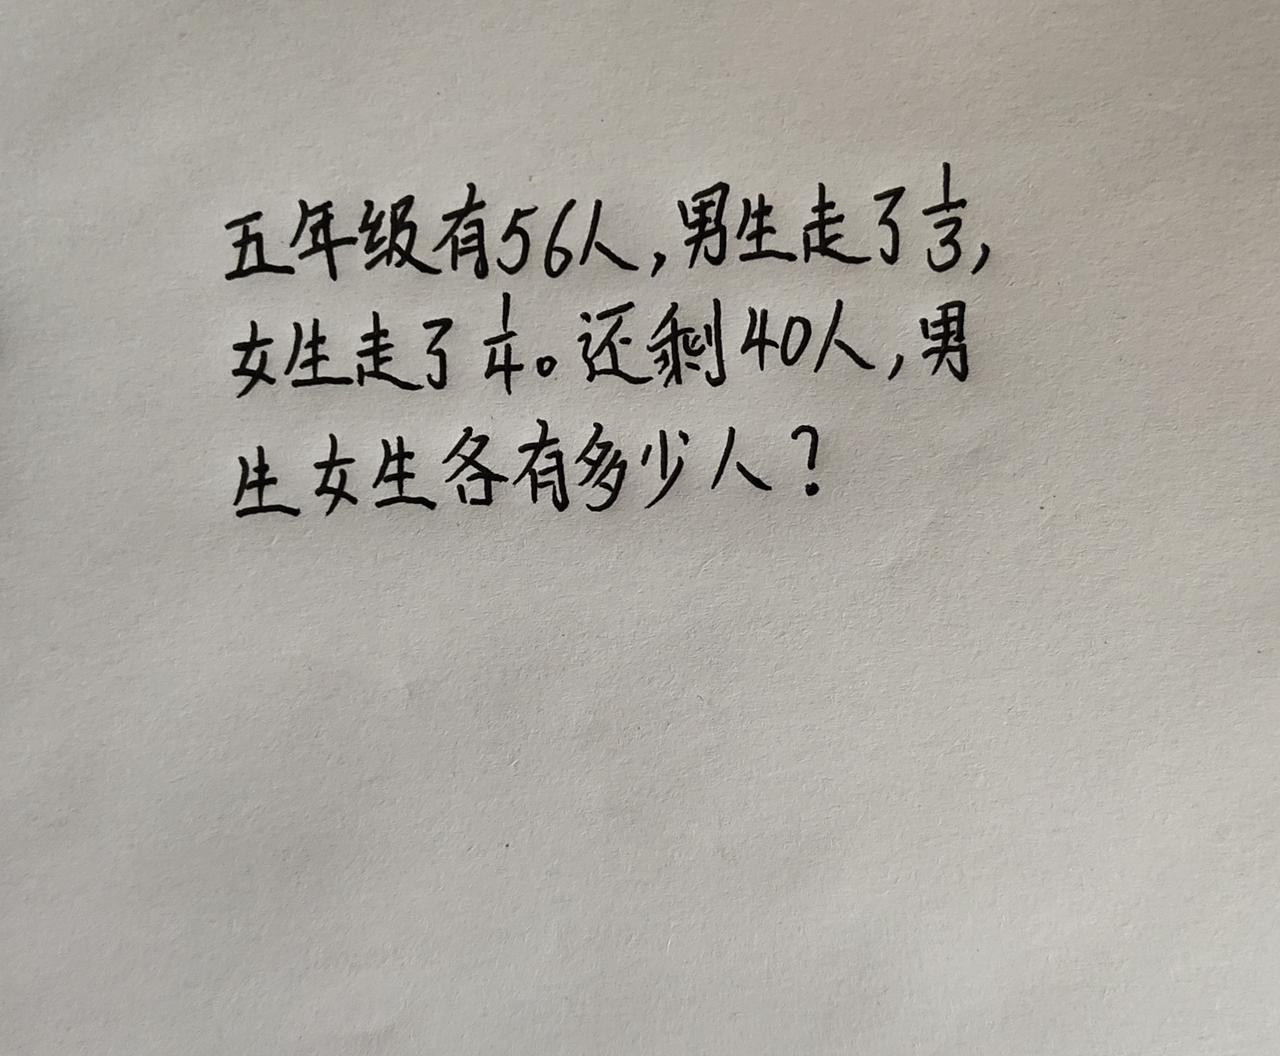 五年级有56人,男生走了1/3,
女生走了1/4。还剩40人,男
生女生各有多少人?